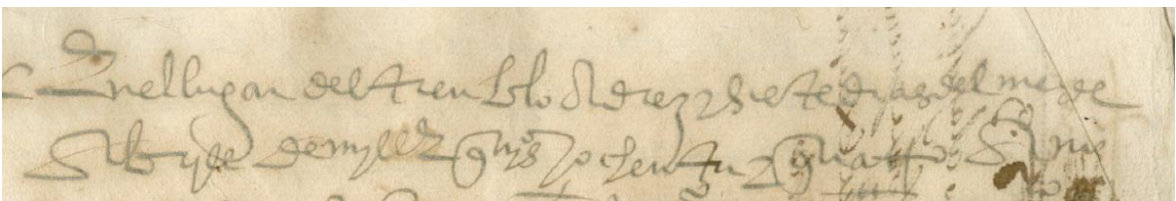 En el lugar del tienblo A diez y siete dias del mes de
Abryll de myll e quis y ochenta y quatro Ante my